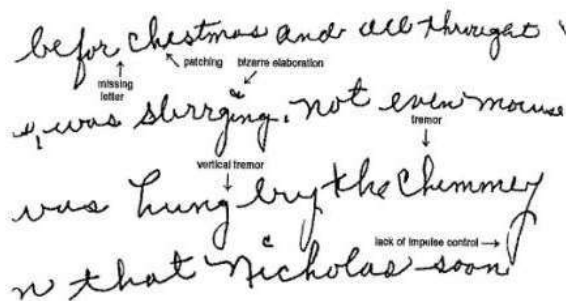 befor chestmas and all throught
missing letter
patching
bizarre elaboration
was slirrging, not even mouse
tremor
vertical tremor
was hung bry the Chemmey
lack of impulse control
n that Nicholas soon